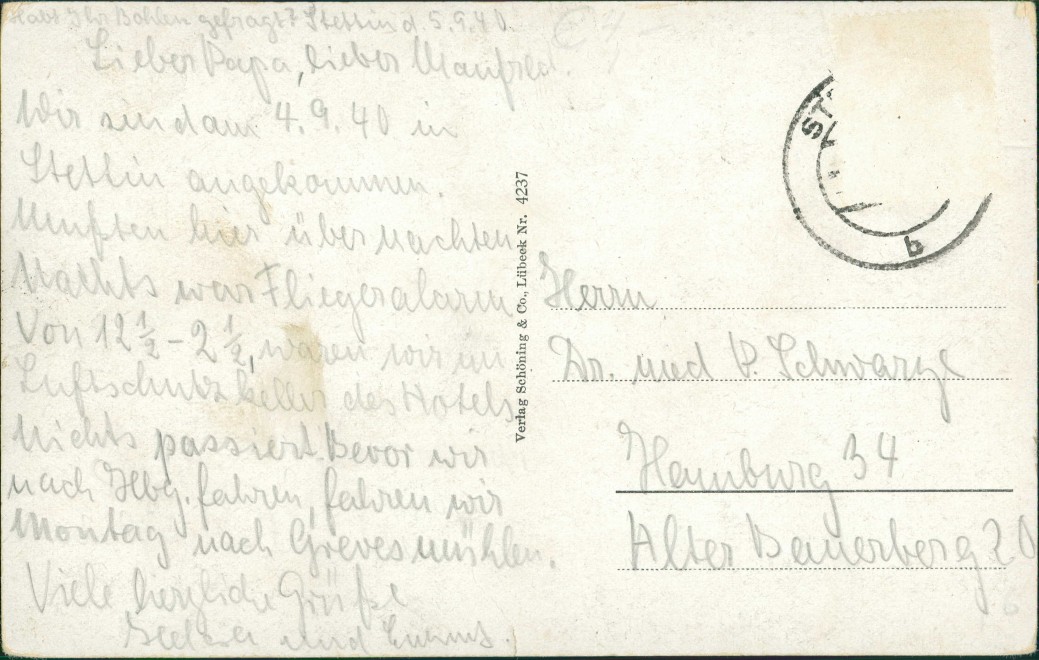 Habt Ihr Bohlen gefragt? Stettin d. 5.9.40.
Lieber Papa, lieber Manfred.
Wir sind am 4.9.40 in
Stettin angekommen.
Mußten hier übernachten
Nachts war Fliegeralarm
Von 12 1/2 - 2 1/2, waren wir im
Luftschutzkeller des Hotels,
Nichts passiert. Bevor wir
nach Hbg. fahren, fahren wir
Montag nach Grevesmühlen.
Viele herzliche Grüße
und
Verlag Schöning & Co., Lübeck Nr. 4237
ST
b
Herrn
Dr. med P. Schwarze
Hamburg 34
Alter Bauerberg 20